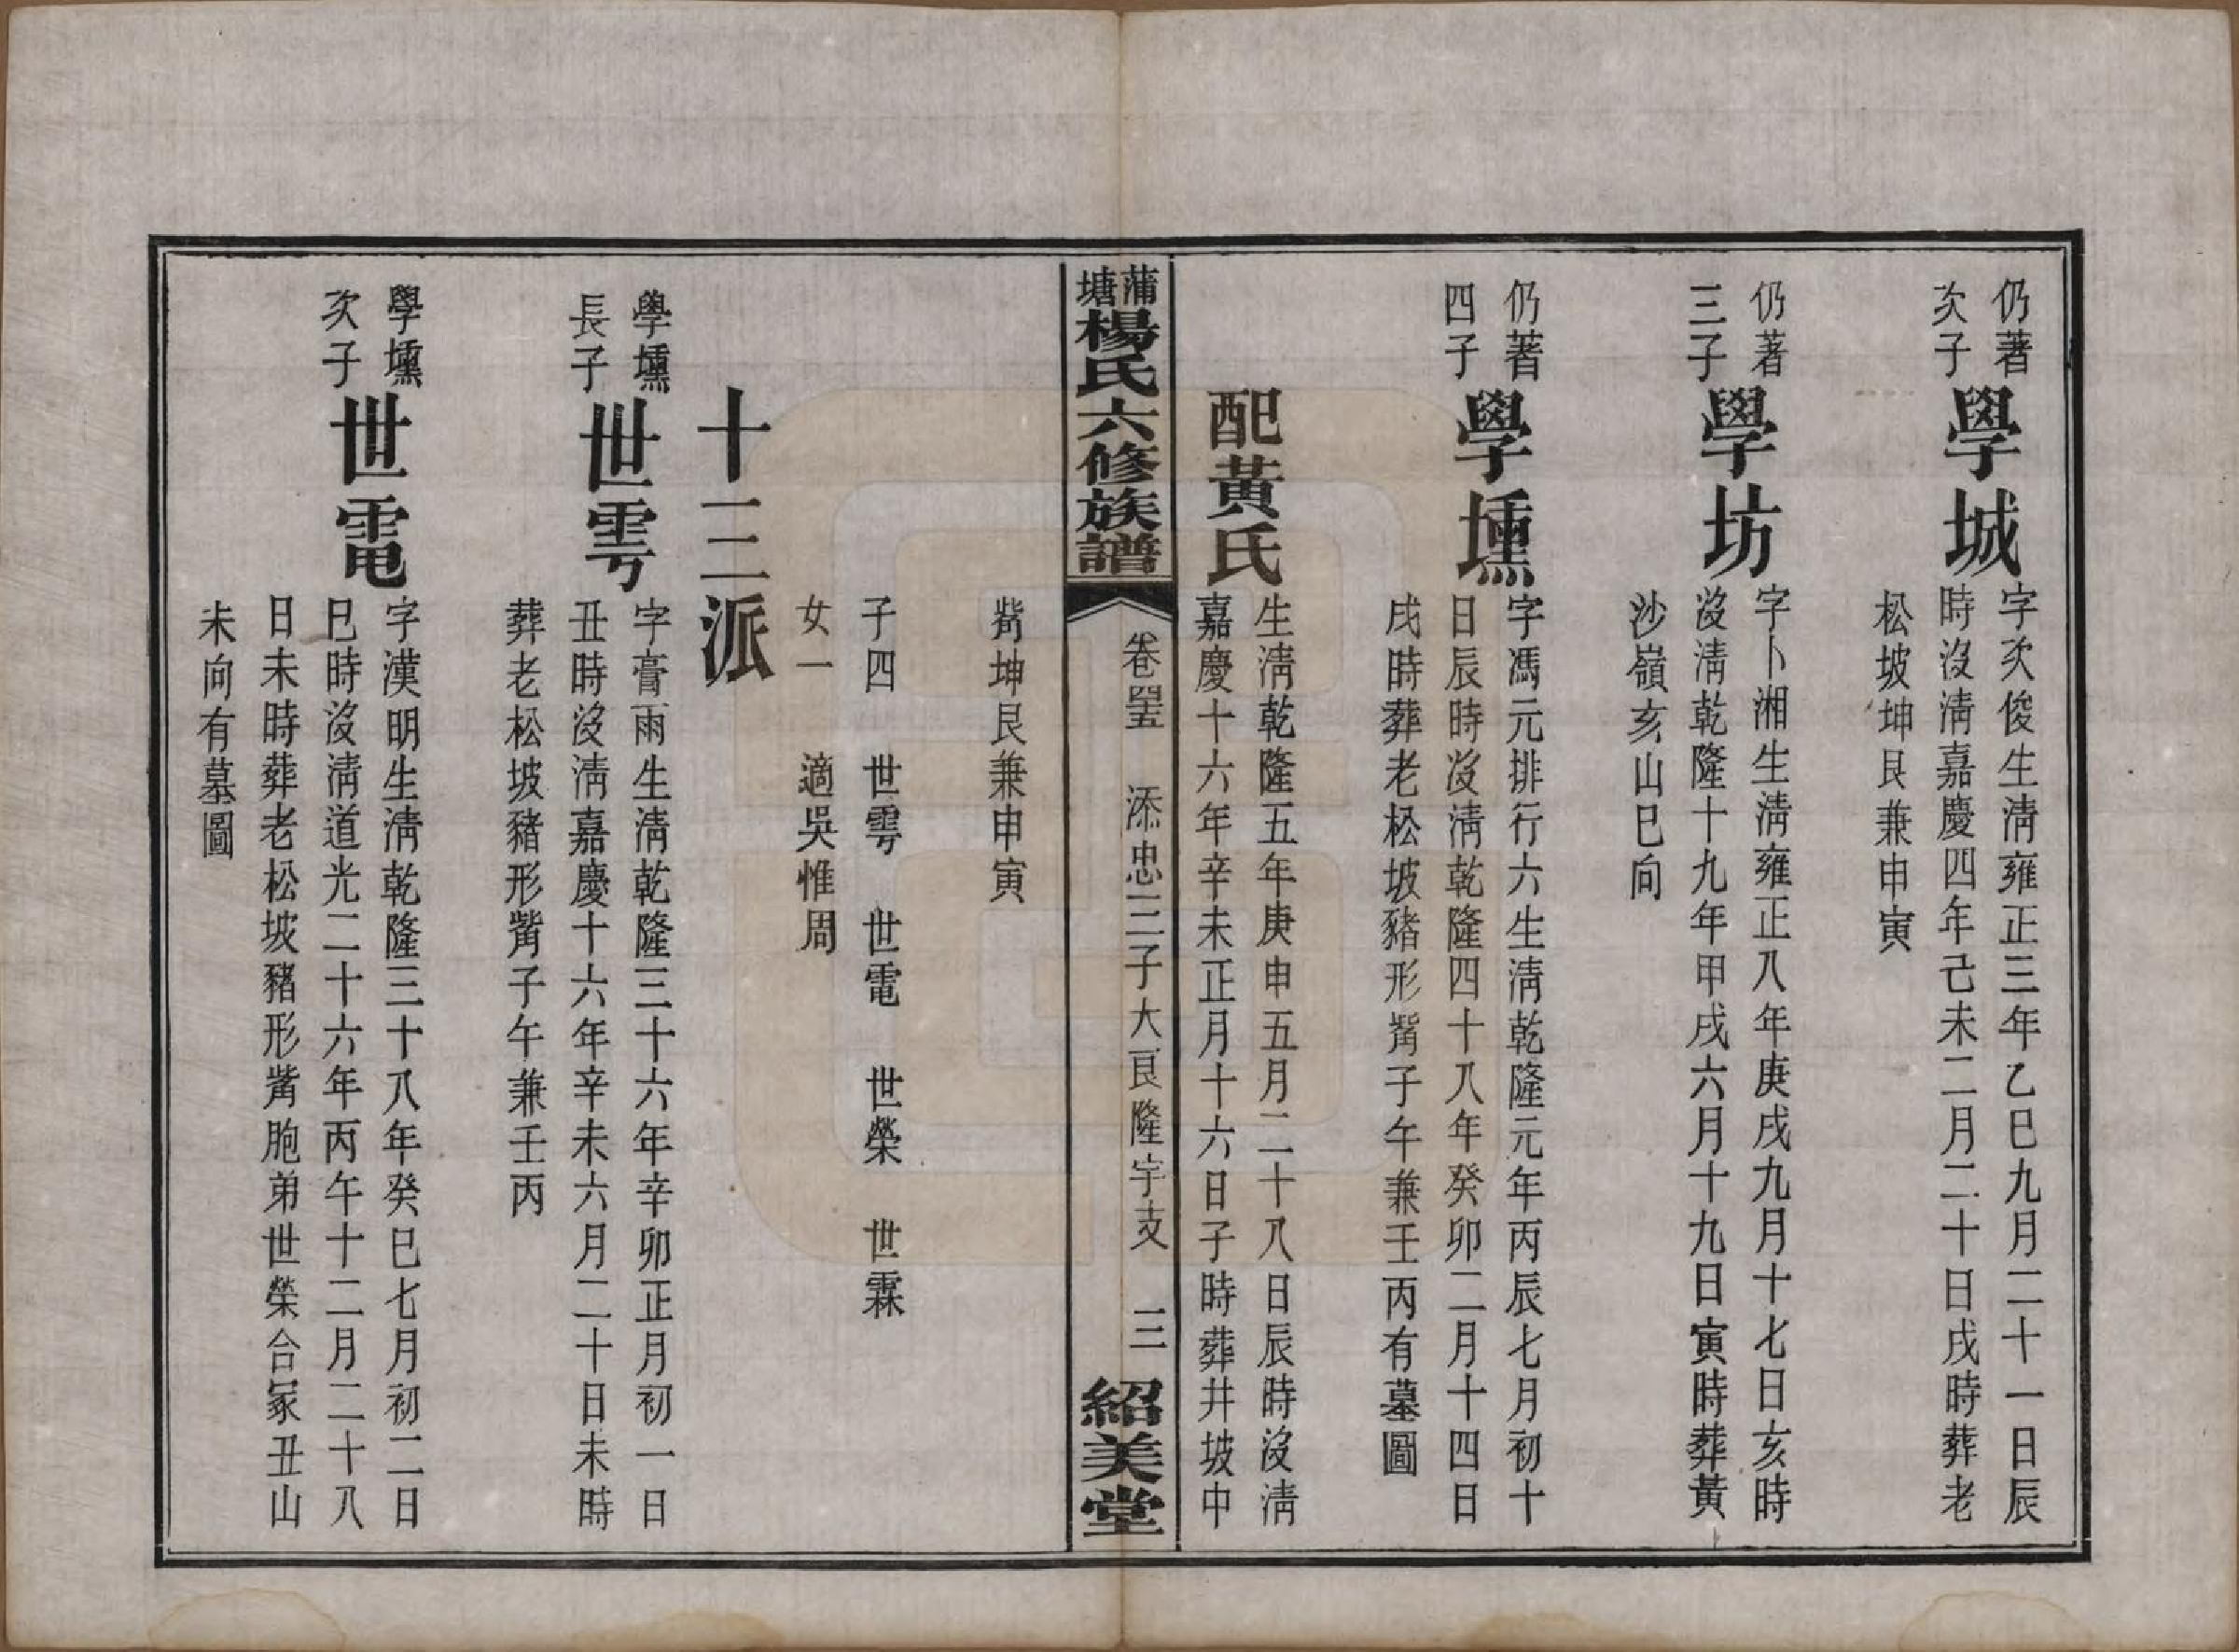 仍著次子
學城
字次俊生淸雍正三年乙巳九月二十一日辰
時沒淸嘉慶四年己未二月二十日戌時葬老
松坡坤艮兼申寅
仍著三子
學坊
字卜湘生淸雍正八年庚戌九月十七日亥時
沒淸乾隆十九年甲戌六月十九日寅時葬黃
沙嶺亥山巳向
仍著四子
學壎
字馮元排行六生淸乾隆元年丙辰七月初十
日辰時沒淸乾隆四十八年癸卯二月十四日
戌時葬老松坡豬形觜子午兼壬丙有墓圖
配黃氏
生淸乾隆五年庚申五月二十八日辰時沒淸
嘉慶十六年辛未正月十六日子時葬井坡中
蒲塘楊氏六修族譜
卷四十五 添忠三子大良隆宇支 三
紹美堂
觜坤艮兼申寅
子四 世雩 世電 世榮 世霖
女一 適吳惟周
十三派
學壎長子
世雩
字膏雨生淸乾隆三十六年辛卯正月初一日
丑時沒淸嘉慶十六年辛未六月二十日未時
葬老松坡豬形觜子午兼壬丙
學壎次子
世電
字漢明生淸乾隆三十八年癸巳七月初二日
巳時沒淸道光二十六年丙午十二月二十八
日未時葬老松坡豬形觜胞弟世榮合冢丑山
未向有墓圖